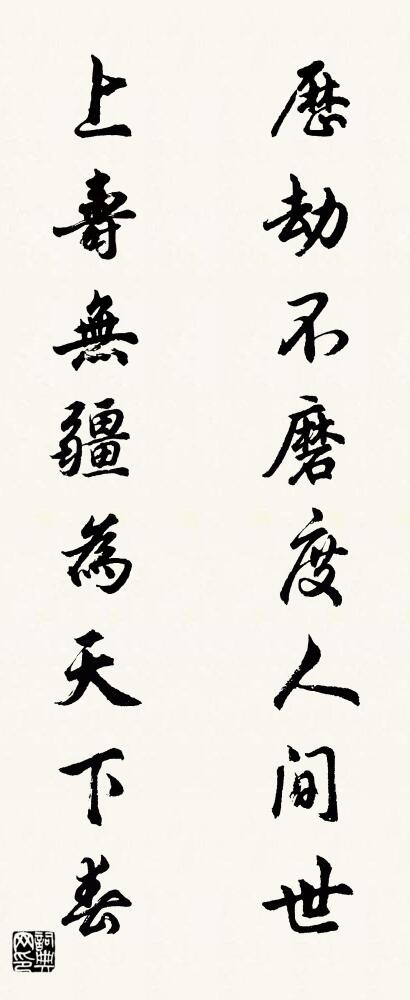 歷劫不磨度人間世
上壽無疆為天下春
詞典网印